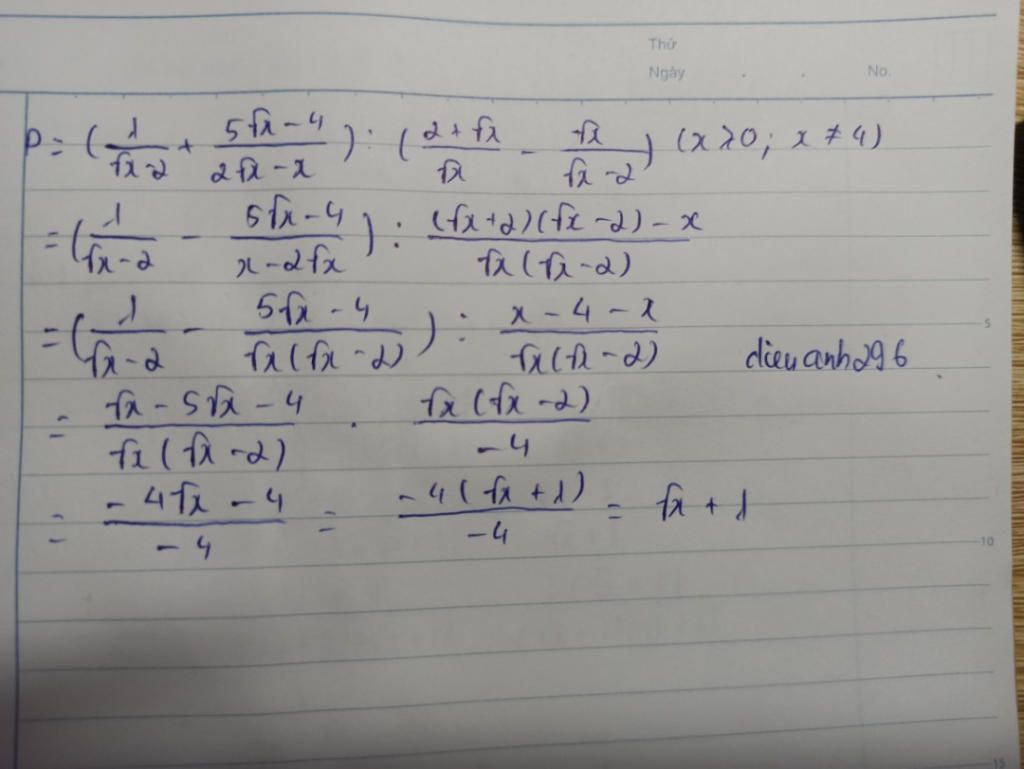 Thứ
Ngày . . No.
P = (1/(√x-2) + (5√x-4)/(2√x-x)) : ((2+√x)/√x - √x/(√x-2)) (x>0; x≠4)
= (1/(√x-2) - (5√x-4)/(x-2√x)) : ((√x+2)(√x-2)-x)/(√x(√x-2))
= (1/(√x-2) - (5√x-4)/(√x(√x-2))) : (x-4-x)/(√x(√x-2))
5
dieuanh296
= (√x-5√x-4)/(√x(√x-2)) . (√x(√x-2))/(-4)
= (-4√x-4)/(-4) = (-4(√x+1))/(-4) = √x+1
10
15